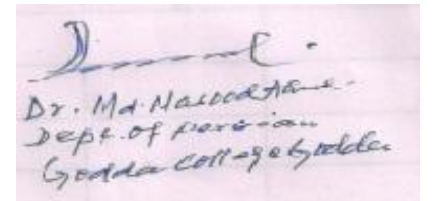 Dr. Md. Masood
Dept. of Persian
Godda College Godda